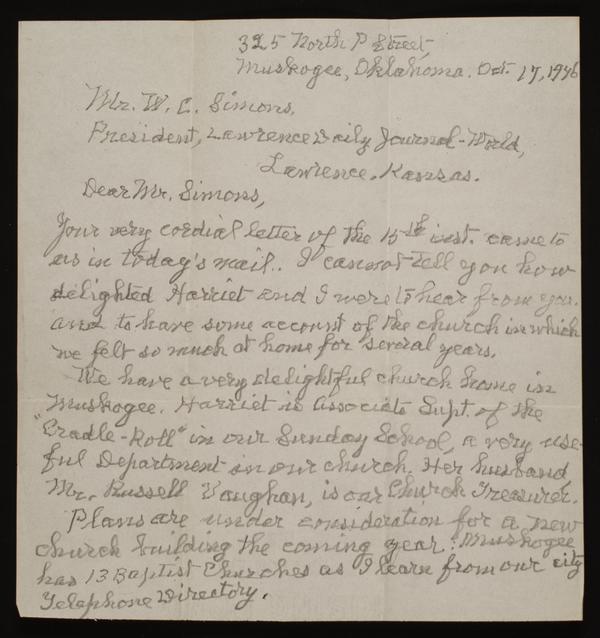 325 North P Street,
Muskogee, Oklahoma. Oct. 17, 1946
Mr. W. C. Simons,
President, Lawrence Daily Journal-World,
Lawrence, Kansas.
Dear Mr. Simons,
Your very cordial letter of the 15th inst. came to
us in today's mail. I cannot tell you how
delighted Harriet and I were to hear from you.
and to have some account of the church in which
we felt so much at home for several years.
We have a very delightful church home in
Muskogee. Harriet is Associate Supt. of the
"Cradle-Roll" in our Sunday School, a very use-
ful Department in our church. Her husband,
Mr. Russell Vaughan, is our Church Treasurer.
Plans are under consideration for a new
church building the coming year. Muskogee
has 13 Baptist Churches as I learn from our city
Telephone Directory.